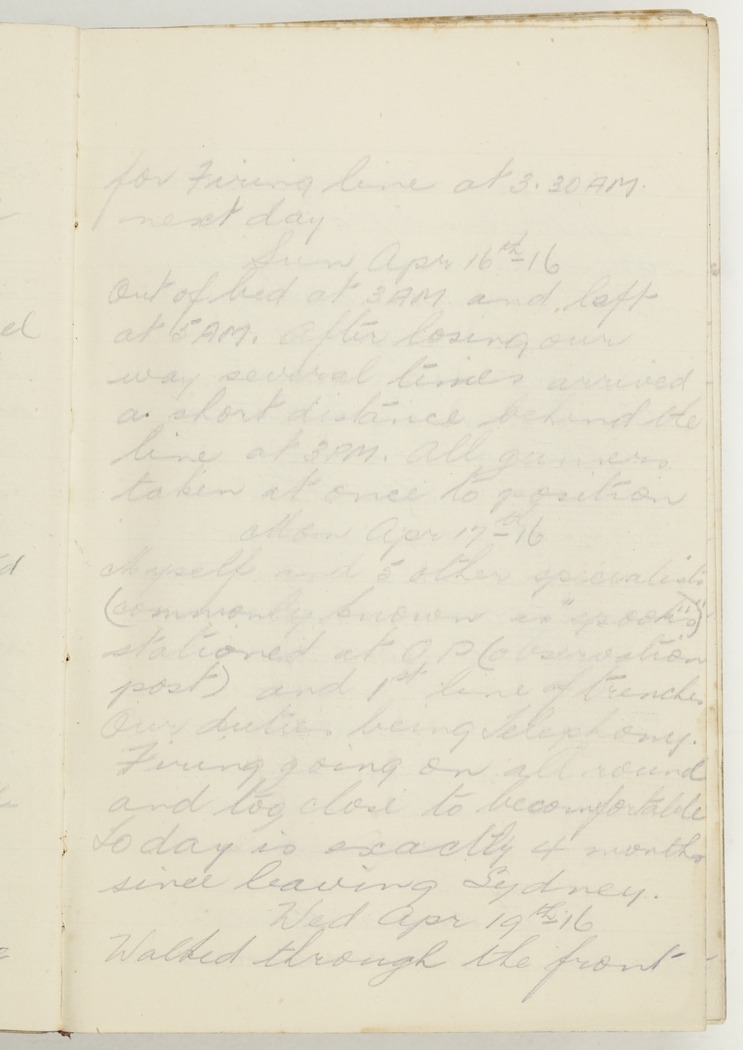 for Firing line at 3.30 AM.
next day
Sun Apr 16th-16
Out of bed at 3 AM and left
at 5 AM. After losing our
way several times arrived
a short distance behind the
line at 3 PM. All gunners
taken at once to position
Mon Apr 17th-16
Myself and 5 other specialists
(commonly known as "spooks")
stationed at O.P (observation
post) and 1st line of trenches
Our duties being Telephony.
Firing going on all round
and too close to be comfortable
Today is exactly 4 months
since leaving Sydney.
Wed Apr 19th-16
Walked through the front